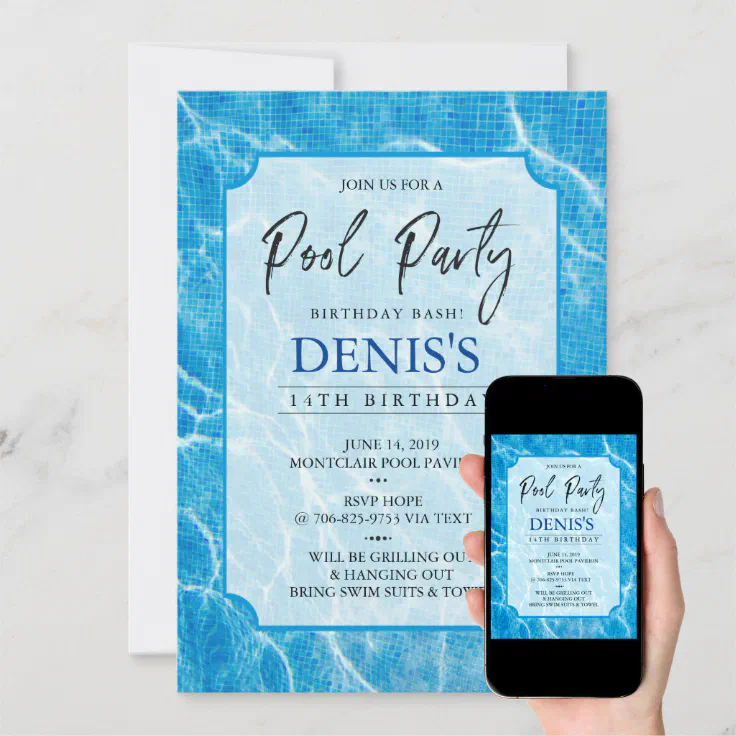 JOIN US FOR A
Pool Party
BIRTHDAY BASH!
DENIS'S
14TH BIRTHDAY
JUNE 14, 2019
MONTCLAIR POOL PAVIL
RSVP HOPE
@ 706-825-9753 VIA TEXT
WILL BE GRILLING OUT
& HANGING OUT
BRING SWIM SUITS & TOWE
JOIN US FOR A
Pool Party
BIRTHDAY BASH!
DENIS'S
14TH BIRTHDAY
JUNE 14, 2019
MONTCLAIR POOL PAVILION
RSVP HOPE
@ 706-825-9753 VIA TEXT
WILL BE GRILLING OUT
& HANGING OUT
BRING SWIM SUITS & TOWEL